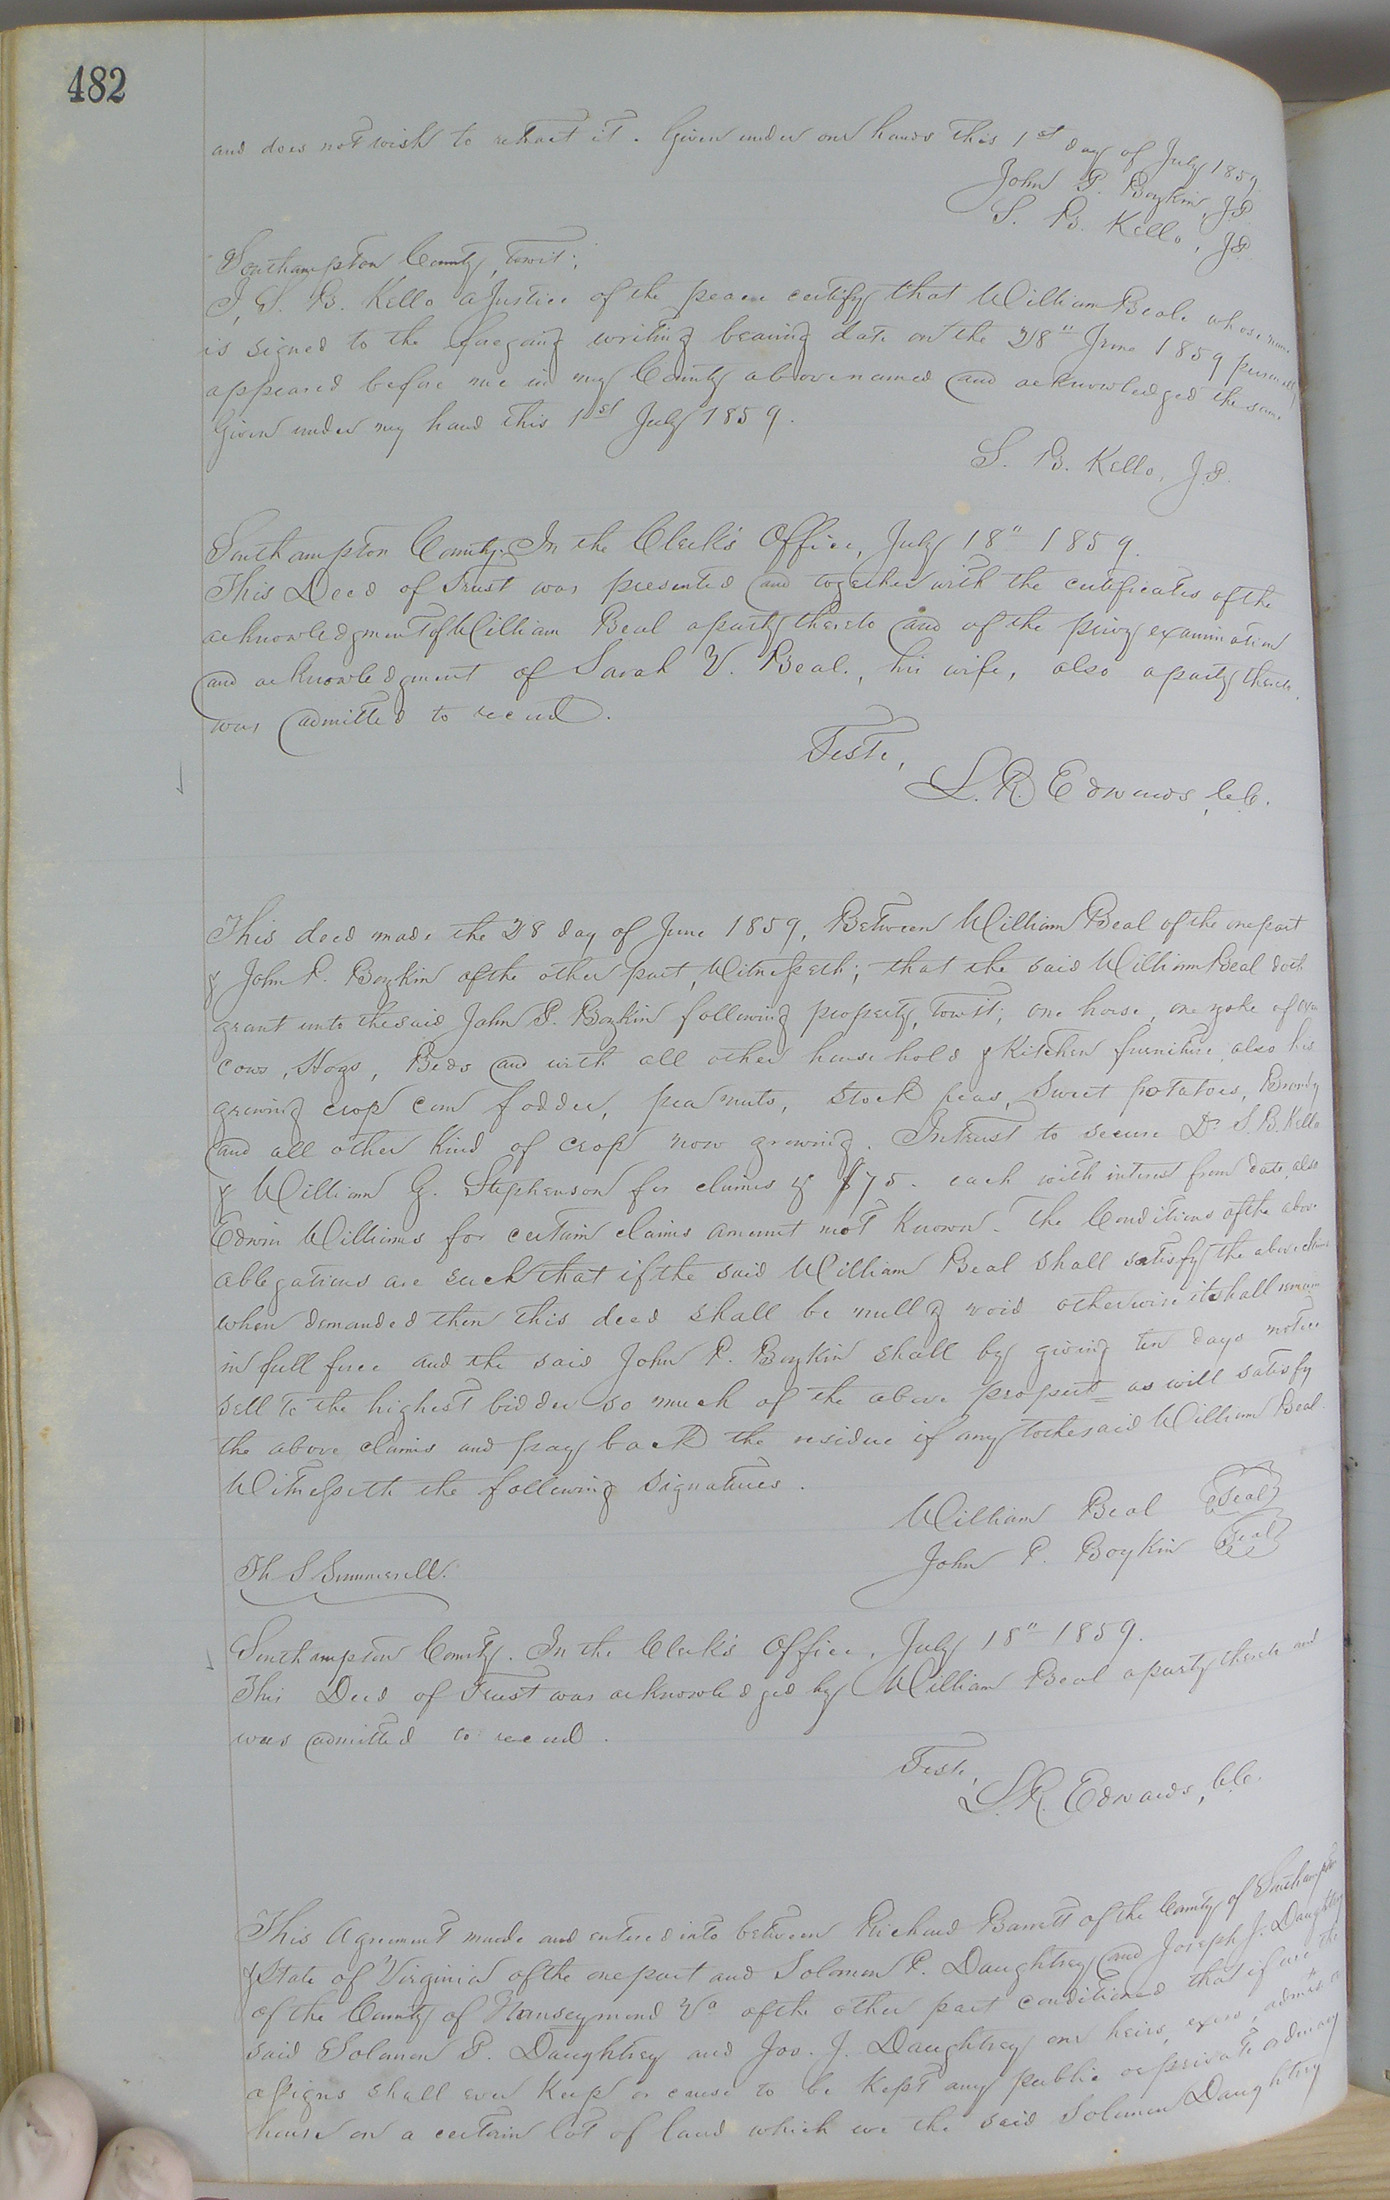 482
and does not wish to retract it. Given under our hands this 1st day of July 1859.
John P. Boykin, JP
S. B. Kello, JP
Southampton County, towit;
I, S. B. Kello a Justice of the peace certify that William Beal. whose name
is signed to the foregoing writing bearing date on the 28" June 1859 personally
appeared before me in my County above named and acknowledged the same
Given under my hand this 1st July 1859.
S. B. Kello, J.P.
Southampton County. In the Clerk's Office, July 18" 1859.
This Deed of Trust was presented and together with the certificates of the
acknowledgment of William Beal a party thereto and of the privy examination
and acknowledgment of Sarah V. Beal, his wife, also a party thereto,
was admitted to record.
Teste,
L. R. Edwards, C.C.
This deed made the 28 day of June 1859, Between William Beal of the one part
& John P. Boykin of the other part, Witnesseth; that the said William Beal doth
grant unto the said John P. Boykin following property, towit; one horse, one yoke of oxen
cows, Hogs, Beds and with all other household & Kitchen furniture, also his
growing crop corn fodder, pea nuts, Stock peas, Sweet potatoes, Brandy
and all other Kind of crop now growing. In trust to secure Dr. S. B. Kello
& William G. Stephenson for claims of $75- each with interest from date, also
Edwin Williams for certain claims amount not Known - The Conditions of the above
obbligations are such that if the said William Beal shall satisfy the above claims
when demanded then this deed shall be null & void otherwise it shall remain
in full force and the said John P. Boykin shall by giving ten days notice
sell to the highest bidder so much of the above property as will satisfy
the above claims and pay back the residue if any to the said William Beal.
Witnesseth the following signatures.
William Beal Seal
John P. Boykin Seal
Th S Summerell.
Southampton County. In the Clerk's Office, July 18" 1859.
This Deed of Trust was acknowledged by William Beal a party thereto and
was admitted to record.
Teste,
L. R. Edwards, C.C.
This Agreement made and entered into between Richard Barrett of the County of Southampton
& State of Virginia of the one part and Solomon P. Daughtrey and Joseph J. Daughtrey
of the County of Nanseymond Va of the other part conditioned that if we the
said Solomon P. Daughtrey and Jos. J. Daughtrey our heirs, exors, admrs or
assigns shall ever Keep or cause to be Kept any public or private ordinary
house on a certain lot of land which we the said Solomon Daughtrey